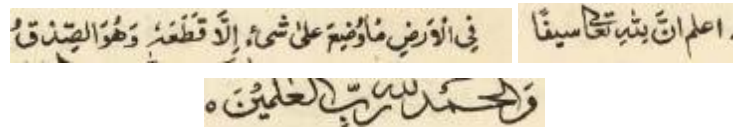 اعلم انَّ لِلّٰهِ تعالٰى سيفًا
فِي الْاَرضِ مَا وُضِعَ عَلىٰ شىءٍ إِلَّا قَطَعَهٗ وَهُوَ الصِّدْقُ
وَالحَمدُ للهِ رَبِّ العٰلَمِيْنَ ه